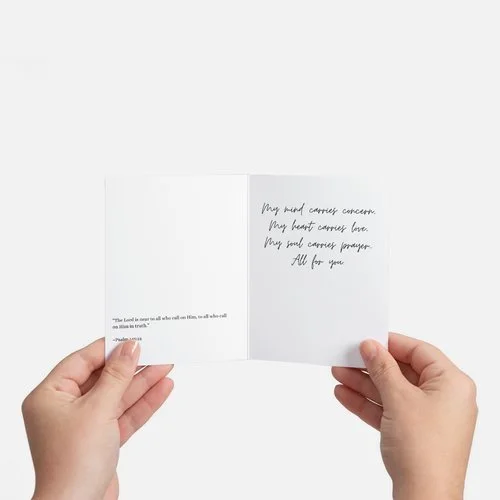 "The Lord is near to all who call on Him, to all who call
on Him in truth."
–Psalm
My mind carries concern.
My heart carries love.
My soul carries prayer.
All for you